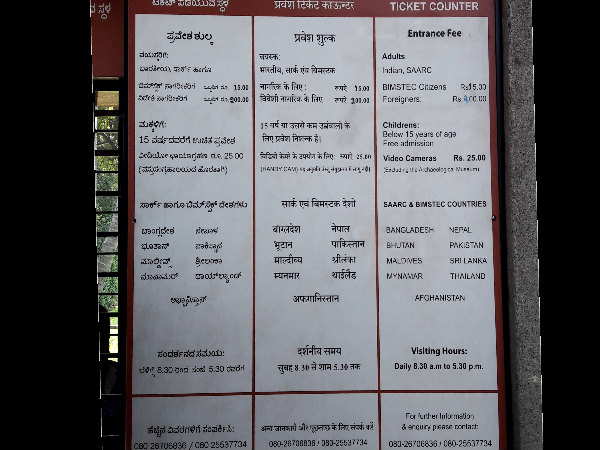 ಟಿಕೆಟ್ ಪಡೆಯುವ ಸ್ಥಳ
ಪ್ರವೇಶ ಶುಲ್ಕ
ವಯಸ್ಕರಿಗೆ:
ಭಾರತೀಯ, ಸಾರ್ಕ್ ಹಾಗೂ
ಬಿಮ್ಸ್‌ಟೆಕ್ ನಾಗರೀಕರಿಗೆ 15.00
ವಿದೇಶಿ ನಾಗರೀಕರಿಗೆ 200.00
ಮಕ್ಕಳಿಗೆ:
15 ವರ್ಷದವರೆಗೆ ಉಚಿತ ಪ್ರವೇಶ
ವೀಡಿಯೋ ಛಾಯಾಗ್ರಹಣ ರೂ. 25.00
(ವಸ್ತುಸಂಗ್ರಹಾಲಯದ ಹೊರತಾಗಿ)
ಸಾರ್ಕ್ ಹಾಗೂ ಬಿಮ್ಸ್‌ಟೆಕ್ ದೇಶಗಳು
ಬಾಂಗ್ಲದೇಶ ನೇಪಾಳ
ಭೂತಾನ್ ಪಾಕಿಸ್ಥಾನ
ಮಾಲ್ಡೀವ್ಸ್ ಶ್ರೀಲಂಕಾ
ಮಾಯನಮರ್ ಥಾಯ್‌ಲ್ಯಾಂಡ್
ಅಫ್ಘಾನಿಸ್ತಾನ್
ಸಂದರ್ಶನದ ಸಮಯ:
ಬೆಳಿಗ್ಗೆ 8.30 ರಿಂದ ಸಂಜೆ 5.30 ರವರೆಗೆ
ಹೆಚ್ಚಿನ ವಿವರಗಳಿಗೆ ಸಂಪರ್ಕಿಸಿ:
080-26706836 / 080-25537734
प्रवेश टिकट काऊन्टर
प्रवेश शुल्क
वयस्क:
भारतीय, सार्क एवं बिमस्टक
नागरिक के लिए : रूपये 15.00
विदेशी नागरिक के लिए रूपये 200.00
15 वर्ष या उससे कम उम्रवालो के
लिए प्रवेश निशल्क है।
विडियो केमरे के उपयोग के लिए: रूपये 25.00
सार्क एवं बिमस्टक देशो
बांग्लदेश नेपाल
भूटान पाकिस्तान
माल्दीव्य श्रीलंका
म्यनमार थाईलैंड
अफगानिस्तान
दर्शनीय समय
सुबह 8.30 से शाम 5.30 तक
अन्य जानकार्य और पूछताछ के लिए संपर्क करें
080-26706836 / 080-25537734
TICKET COUNTER
Entrance Fee
Adults:
Indian, SAARC
BIMSTEC Citizens Rs 15.00
Foreigners: Rs 00.00
Childrens:
Below 15 years of age
Free admission
Video Cameras Rs. 25.00
(Excluding the Archaeological Museum)
SAARC & BIMSTEC COUNTRIES
BANGLADESH NEPAL
BHUTAN PAKISTAN
MALDIVES SRI LANKA
MYNAMAR THAILAND
AFGHANISTAN
Visiting Hours:
Daily 8.30 a.m to 5.30 p.m.
For further Information
& enquiry please contact:
080-26706836 / 080-25537734